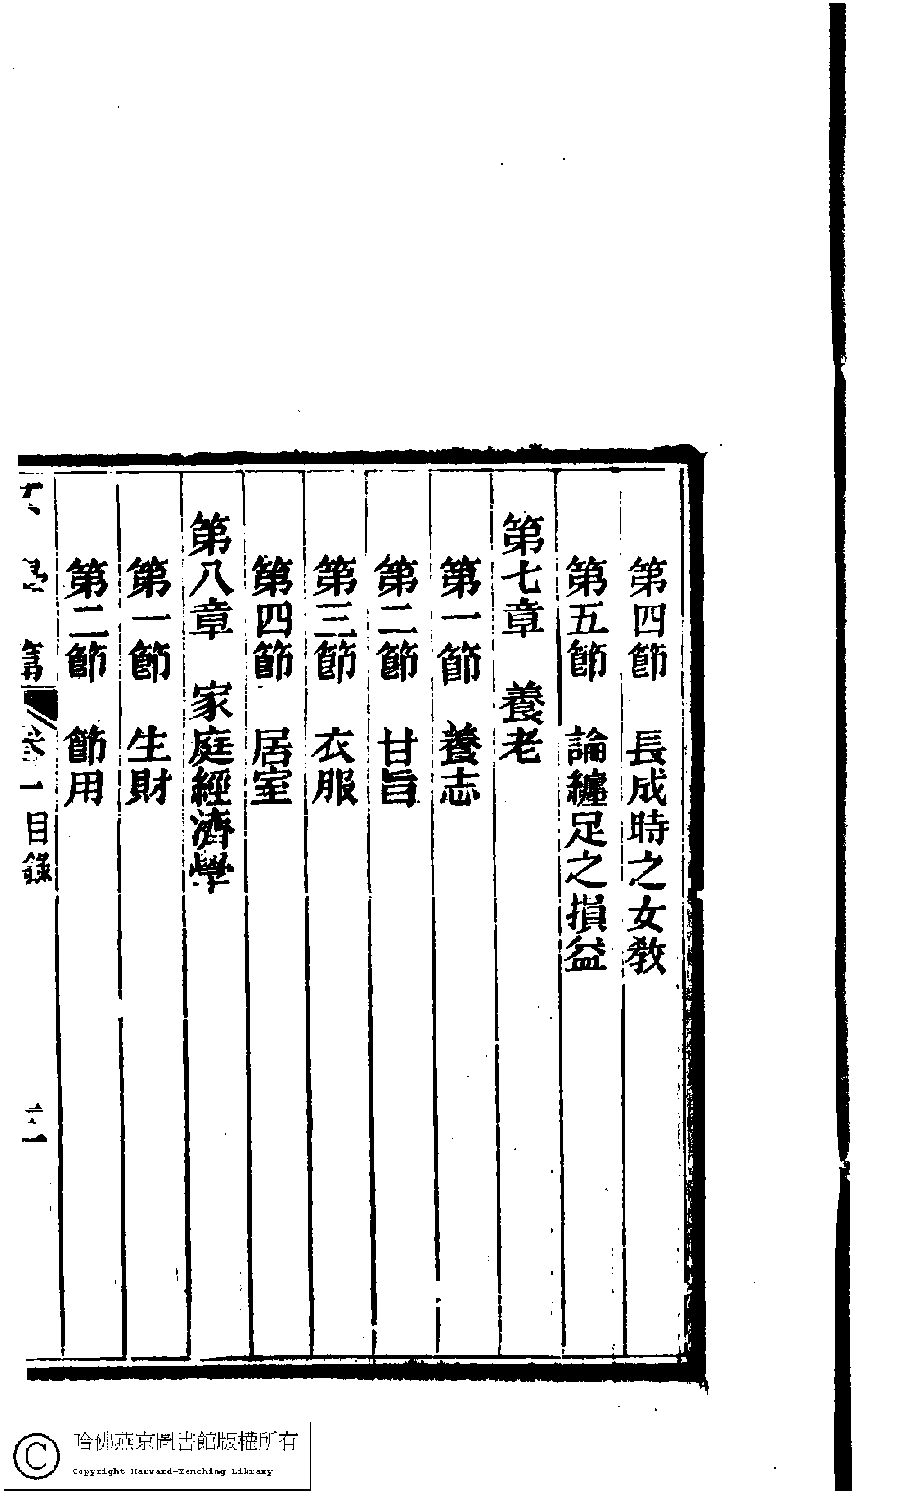 第四節　長成時之女教
第五節　論纏足之損益
第七章　養老
第一節　養志
第二節　甘旨
第三節　衣服
第四節　居室
第八章　家庭經濟學
第一節　生財
第二節　節用
卷一目錄
三
哈佛燕京圖書館版權所有
Copyright Harvard-Yenching Library